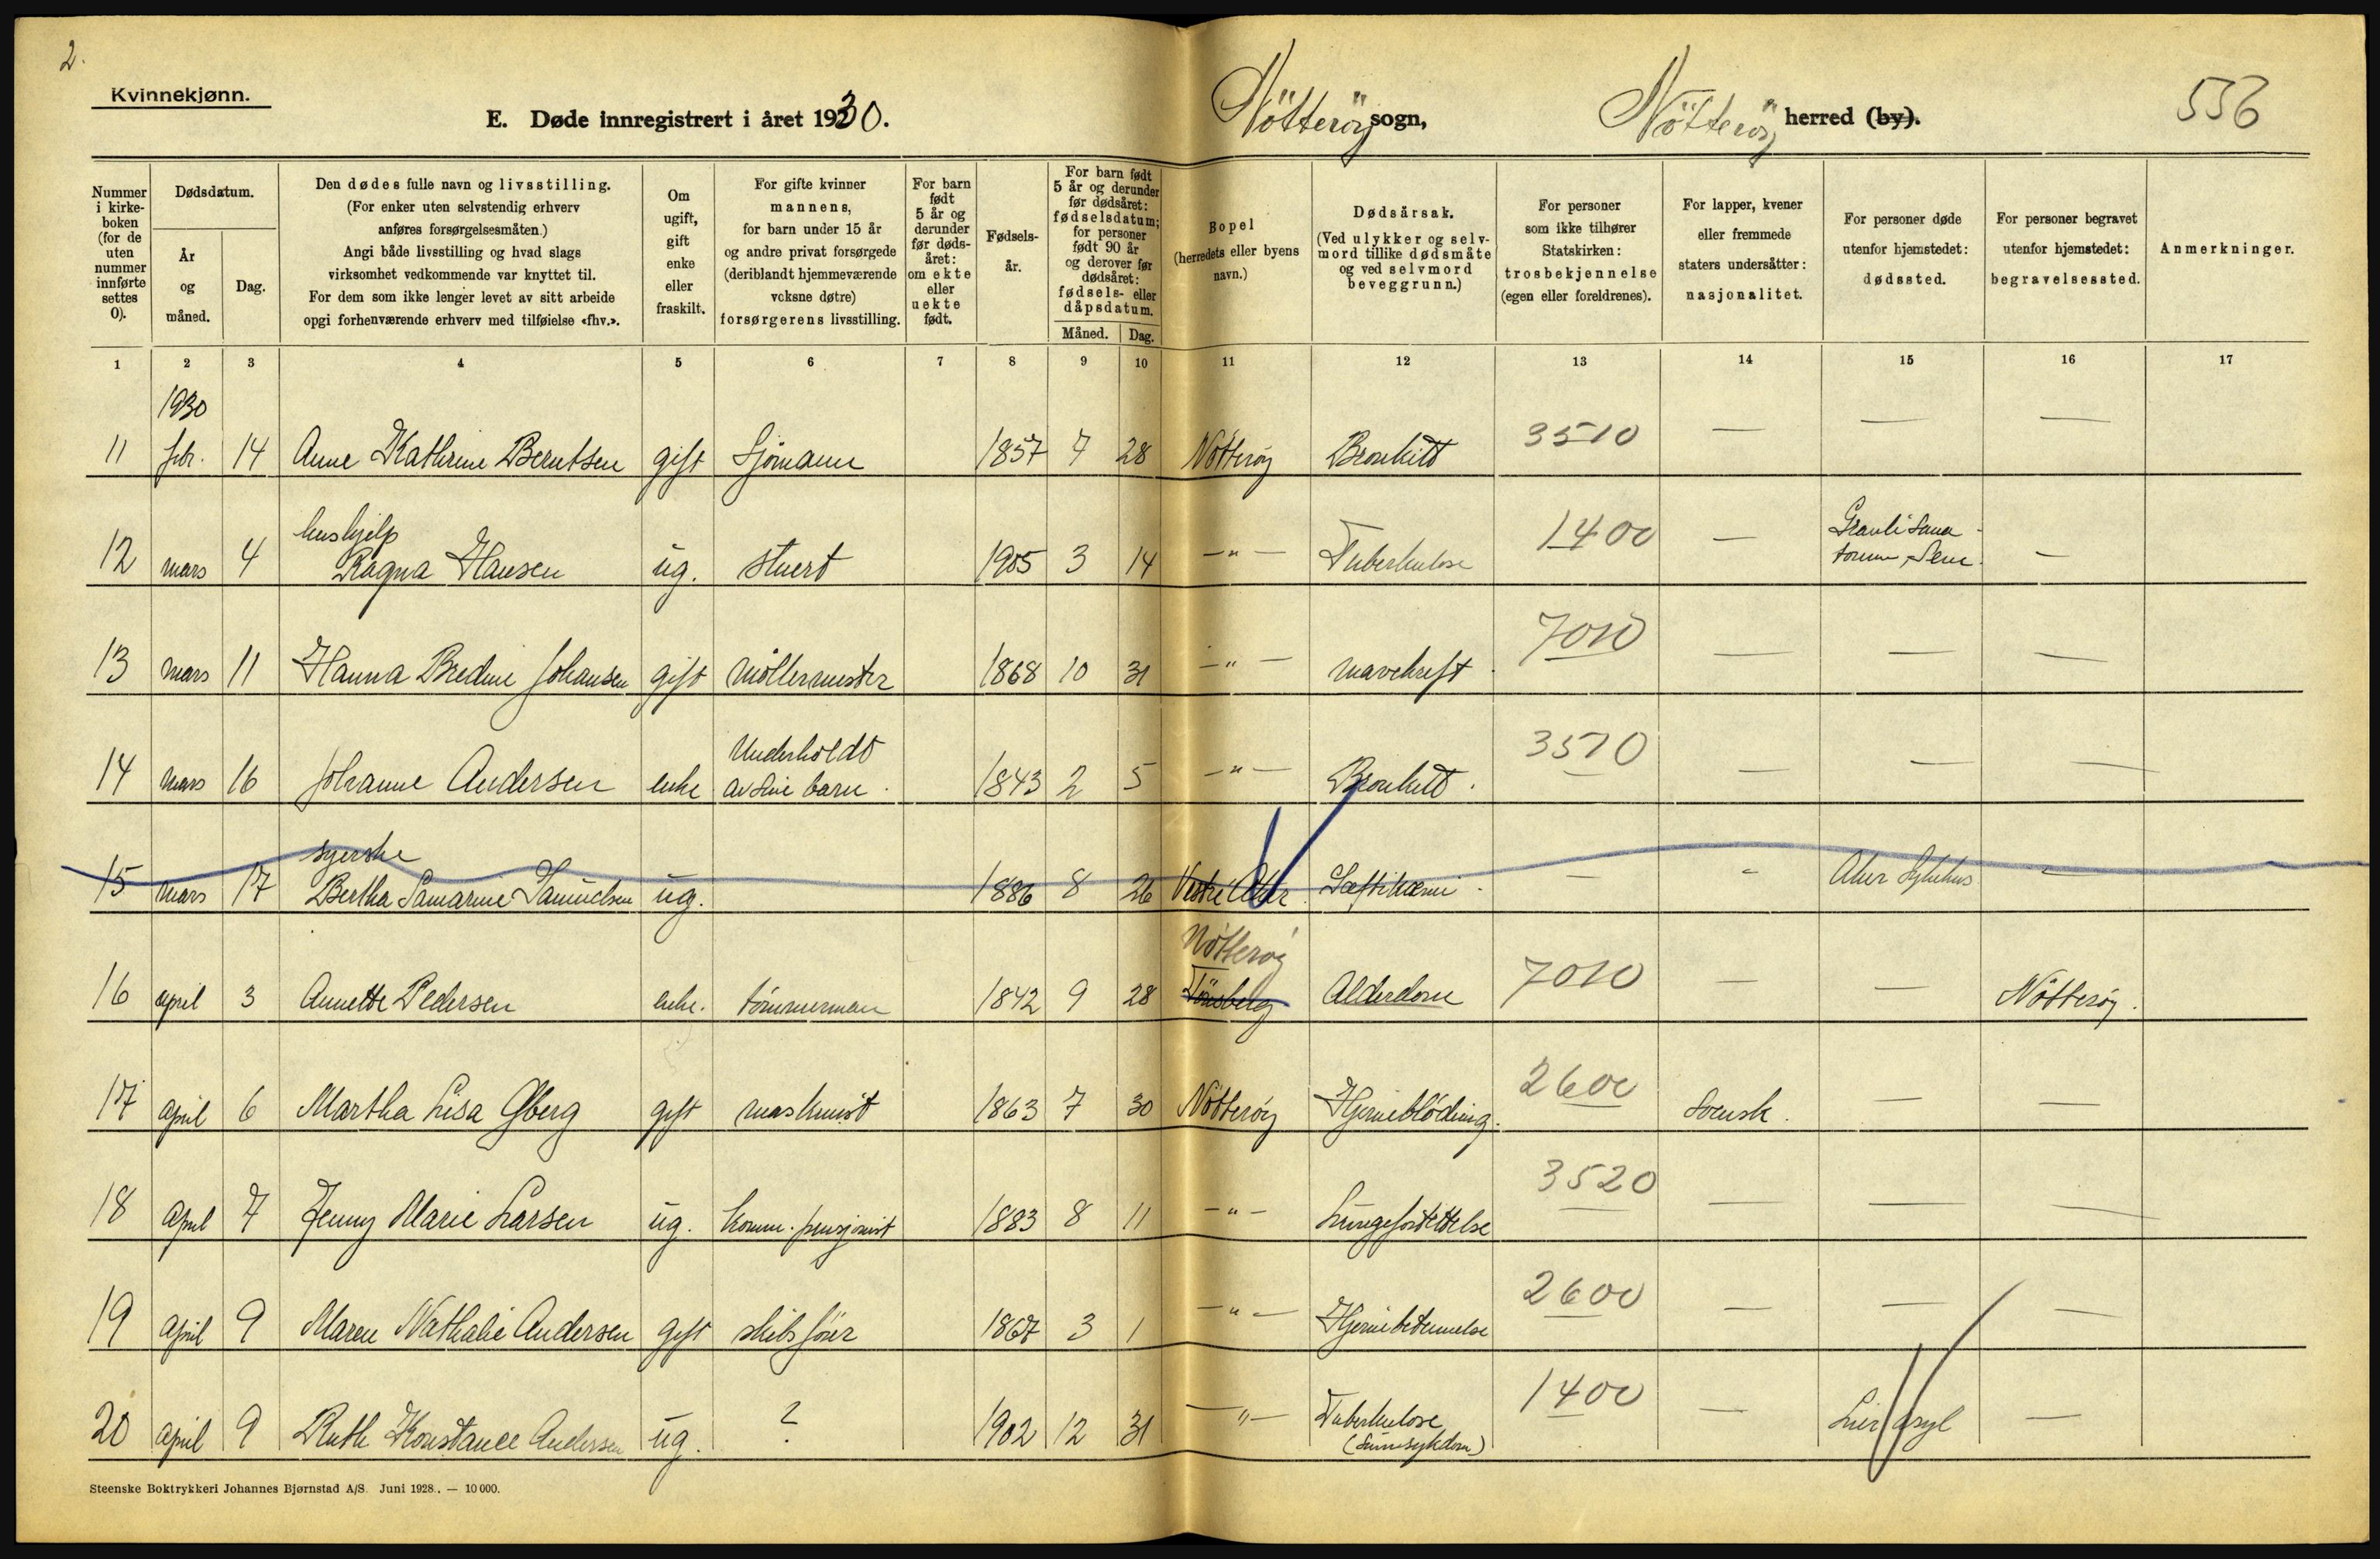 2.
Kvinnekjønn.
E. Døde innregistrert i året 1930.
Nötteröy sogn,
Nötteröy herred (by).
556
Nummer i kirkeboken (for de uten nummer innførte settes 0).
Dødsdatum.
År og måned.
Dag.
Den dødes fulle navn og livsstilling.
(For enker uten selvstendig erhverv
anføres forsørgelsesmåten.)
Angi både livsstilling og hvad slags
virksomhet vedkommende var knyttet til.
For dem som ikke lenger levet av sitt arbeide
opgi forhenværende erhverv med tilføielse «fhv.».
Om ugift, gift enke eller fraskilt.
For gifte kvinner
mannens,
for barn under 15 år
og andre privat forsørgede
(deriblandt hjemmeværende
voksne døtre)
forsørgerens livsstilling.
For barn født 5 år og derunder før dødsåret: om ekte eller uekte født.
Fødselsår.
For barn født 5 år og derunder før dødsåret: fødselsdatum; for personer født 90 år og derover før dødsåret: fødsels- eller dåpsdatum.
Måned. Dag.
Bopel
(herredets eller byens
navn.)
Dødsårsak.
(Ved ulykker og selvmord tillike dødsmåte
og ved selvmord
beveggrunn.)
For personer
som ikke tilhører
Statskirken:
trosbekjennelse
(egen eller foreldrenes).
For lapper, kvener
eller fremmede
staters undersåtter:
nasjonalitet.
For personer døde
utenfor hjemstedet:
dødssted.
For personer begravet
utenfor hjemstedet:
begravelsessted.
Anmerkninger.
1 2 3 4 5 6 7 8 9 10 11 12 13 14 15 16 17
1930
11 febr. 14 Anne Kathrine Berntsen gift Sjömann 1857 7 28 Nötteröy Bronkitt 3510 — — —
hushjelp
12 mars 4 Ragna Hansen ug. stuert 1905 3 14 —"— Tuberkulose 1400 — Granli Sanatorium, Sem. —
13 mars 11 Hanna Bredine Johansen gift möllermester 1868 10 31 —"— mavekreft 7010 — — —
Underholdt
14 mars 16 Johanne Andersen enke av sine barn. 1843 2 5 —"— Bronkitt. 3510 — — —
syerske
15 mars 17 Bertha Samarine Samuelsen ug. 1886 8 26 Vestre Aker Septikæmi. — - Aker Sykehus -
Nötteröy
16 april 3 Annette Pedersen enke. tömmerman 1842 9 28 Tönsberg Alderdom 7010 — — Nötteröy.
17 april 6 Martha Lisa Øberg gift maskinist 1863 7 30 Nötteröy Hjerneblödning. 2600 Svensk. — —
18 April 7 Jenny Marie Larsen ug. komm. pensjonist 1883 8 11 —"— Lungefortettelse 3520 — — —
19 April 9 Maren Nathalie Andersen gift skibsförer 1867 3 1 —"— Hjernebetennelse 2600 — — —
20 April 9 Ruth Konstance Andersen ug. ? 1902 12 31 —"— Tuberkulose (Sinnsykdom) 1400 — Lier Asyl —
Steenske Boktrykkeri Johannes Bjørnstad A/S. Juni 1928. — 10 000.